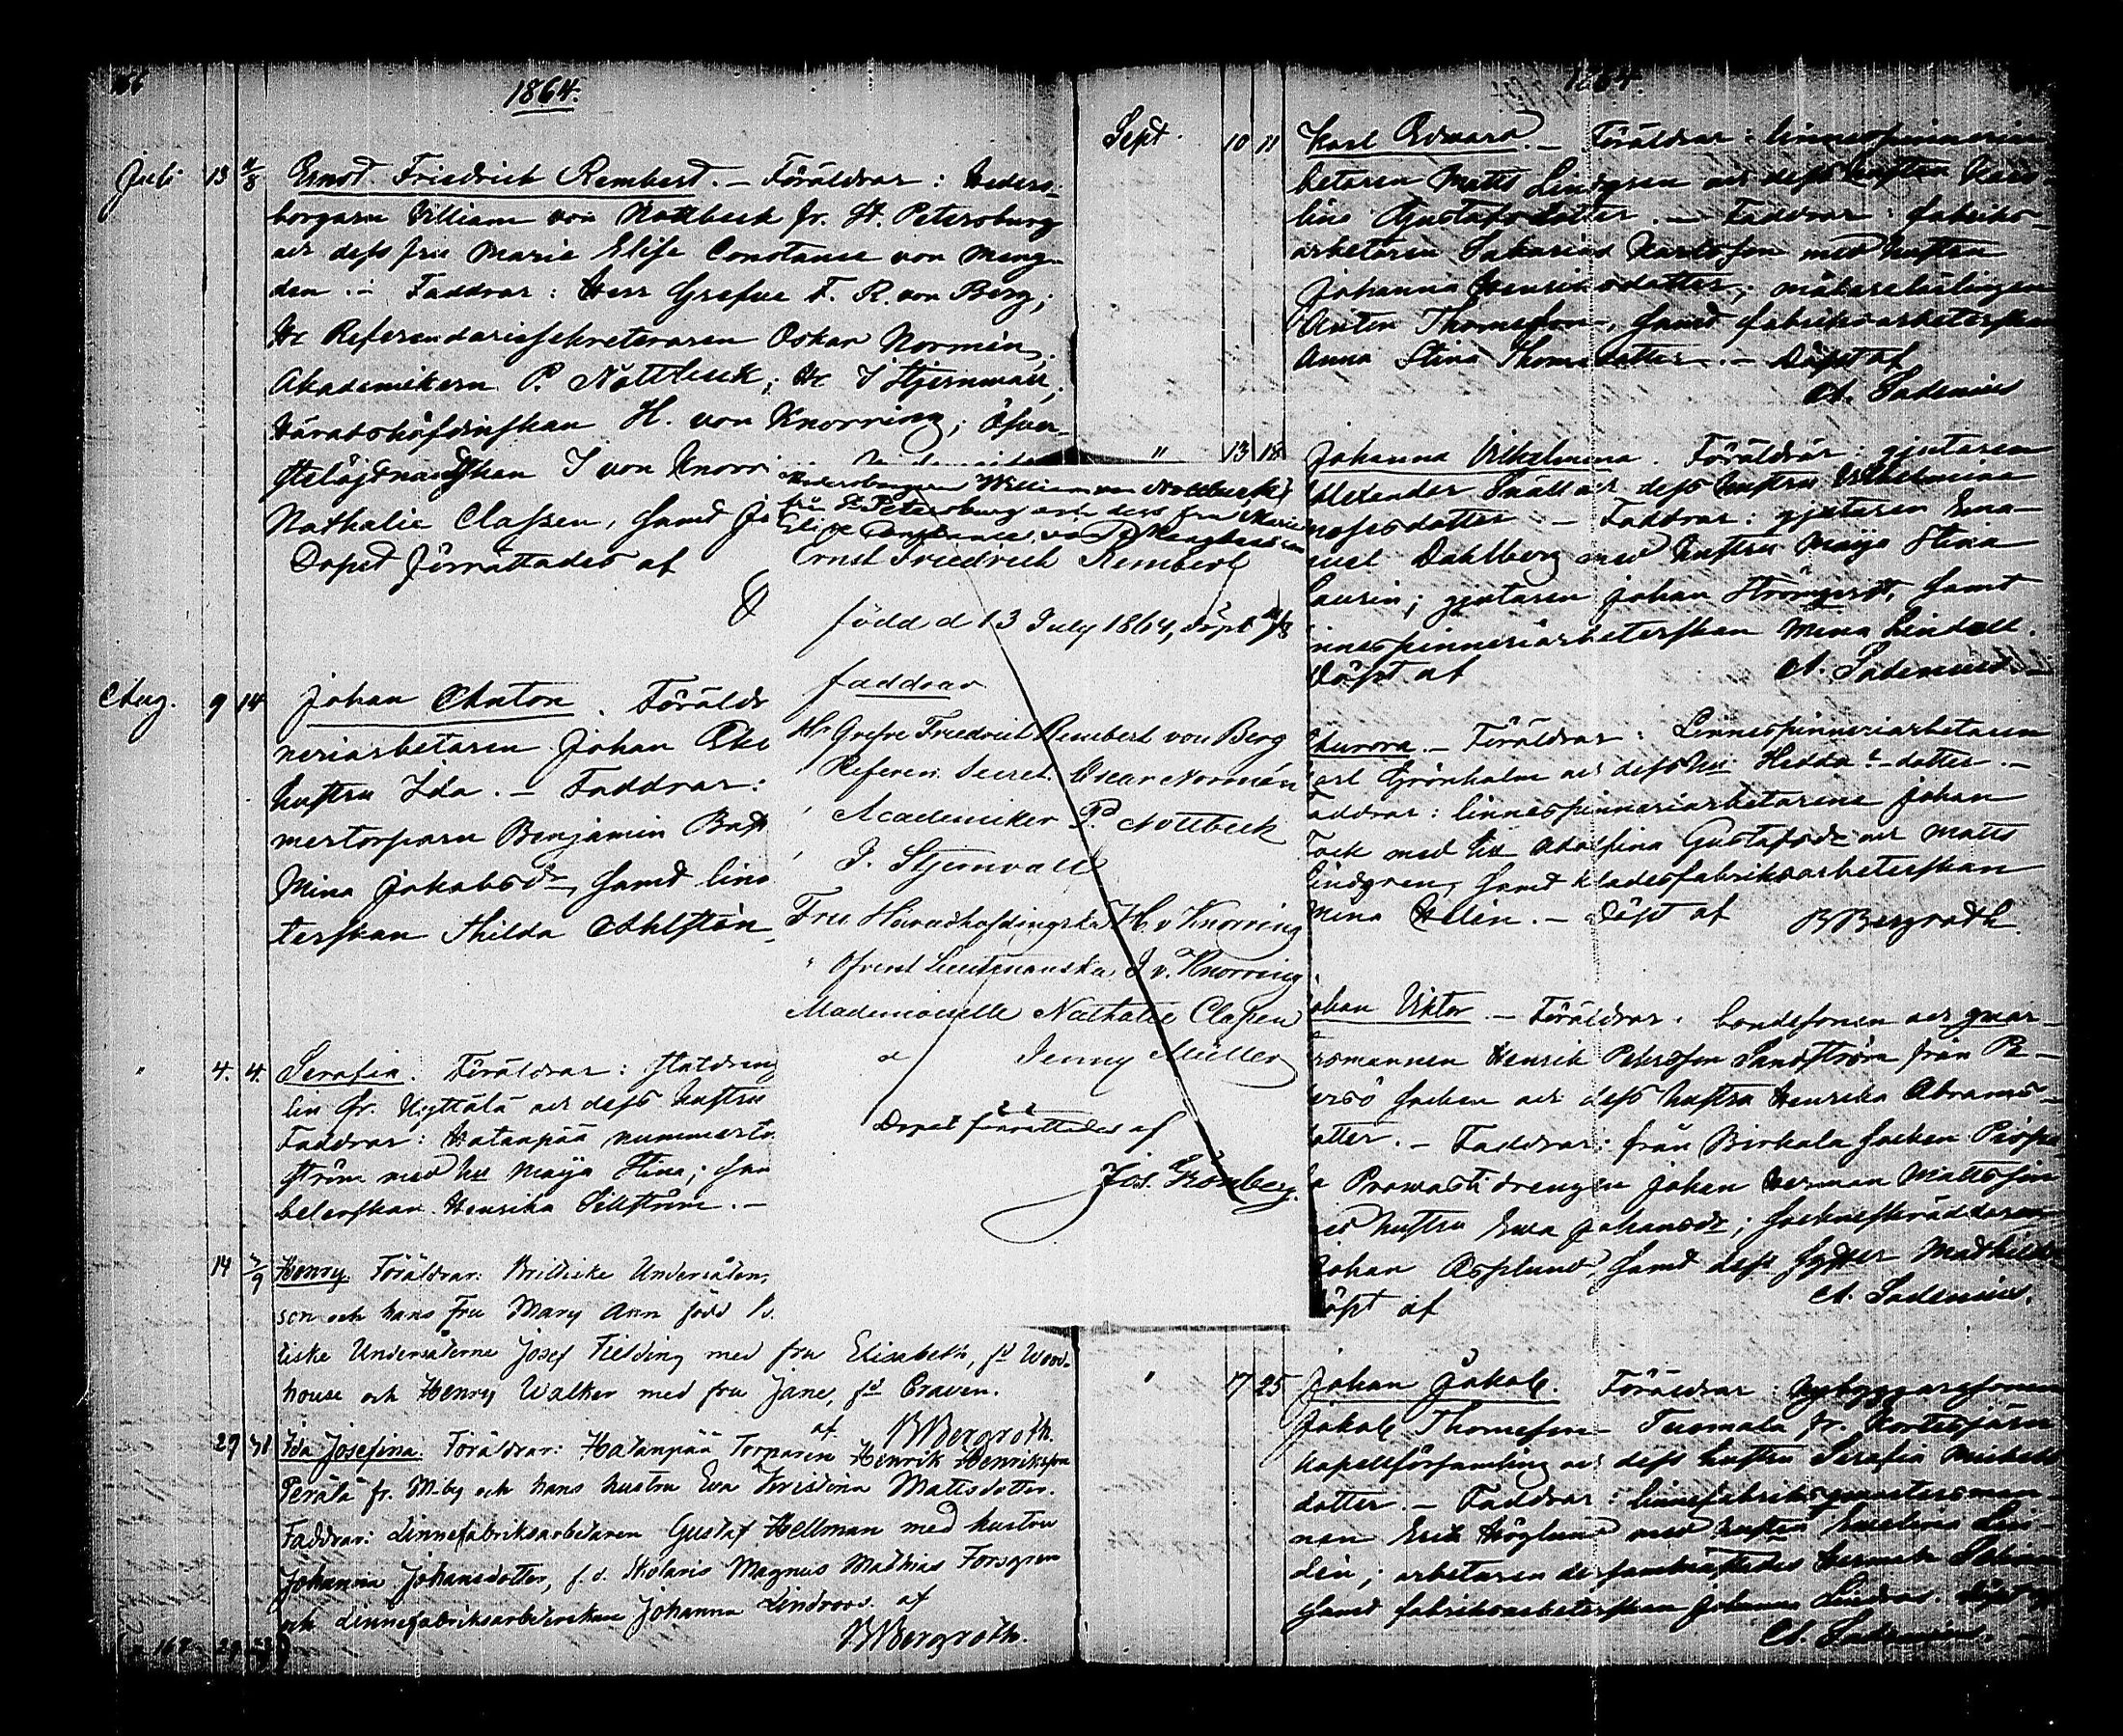 166
1864.
Juli 13 11/8 Ernst Friedrich Rembert. – Föräldrar: Heders-
borgaren William von Nottbeck fr. St. Petersburg
och dess fru Marie Elise Constance von Meng-
den. – Faddrar: Herr Grefve F. R. von Berg;
Hr Referendariesekreteraren Oskar Normén,
Akademikern P. Nottbeck; Hr J Stjernvall;
Häradshöfdinskan H. von Knorring; Öfver-
stelöjtnandskan J von Knorr
Nathalie Classen, samt Je
Dopet förrättades af
Aug. 9 14 Johan Anton. Föräldr
neriarbetaren Johan Eke
hustru Ida. – Faddrar:
mertorparen Benjamin
Mina Jakobsdr, samt linne
terskan Hilda Ahlstén,
" 4. 4. Serafia. Föräldrar: Statdreng
lin fr. Hyttälä och dess hustru
Faddrar: Hatanpää nummerto
ström med hu Maija Stina; sam
beterskan Henrika Sillström. –
14 /9 Henry. Föräldrar: Brittiske Undersåten,
son och hans fru Mary Ann född
tiske Undersåterne Josef Fielding med fru Elisabeth, fd Wood-
house och Henry Walker med fru Jane, fd Craven.
af BBergroth.
29 Ida Josefina. Föräldrar: Hatanpää Torparen Henrik Henriksson
Perälä fr. M.by och hans hustru Eva Kristina Mattsdotter.
Faddrar: Linnefabriksarbetaren Gustaf Hellman med hustru
Johanna Johansdotter, f.d. Skolaris Magnus Mathias Forsgren
och Linnefabriksarbeterskan Johanna Lindroos. af
BBergroth.
Hedersborgaren William von Nottbeck
från St Petersburg och dess fru Marie
Elise Constance von Mengden
Ernst Friedrich Rembert
född d 13 July 1864, döpt 11/8
faddrar
Hr Grefve Friedrich Rembert von Berg
" Referen. Secret. Oscar Normén
" Academiker P. Nottbeck
" J. Stjernvall
Fru Häradshöfdingskan H. v Knorring
" Öfverst Lieutenanska J v. Knorring
Mademoiselle Nathalie Classen
d Jenny Müller
Dopet förrättades af
Jos. Grönberg.
1864.
Sept. 10 11 Karl Edvard. – Föräldrar: linnespinneriar
betaren Matts Lindgren och dess hustru Karo-
lina Gustafsdotter. – Faddrar: fabriks-
arbetaren Sakarias Karlsson med hustru
Johanna Henriksdotter; målarelärlingen
Anton Thomasson, samt fabriksarbeterskan
Anna Stina Thomasdotter. – Döpt af
A. Sadenius
" 13 18 Johanna Vilhelmina. Föräldrar: gjutaren
Alexander Snäll och dess hustru Vilhelmina
dotter – Faddrar: gjutaren Ema-
nuel Dahlberg med hustru Maija Stina
Laurin; gjutaren Johan Strömqvist, samt
innespinneriarbeterskan Mina Lindell.
Döpt af A. Sadenius
Aurora. – Föräldrar: Linnespinneriarbetaren
Karl Grönholm och dess hu Hedda ?-dotter. –
Faddrar: linnespinneriarbetarene Johan
Tock med hu Adolfina Gustafsdr och Matts
Lindgren, samt klädesfabriksarbeterskan
Mina Helén. – Döpt af BBergroth.
Johan Viktor. – Föräldrar: bondesonen och qvar-
romannen Henrik Petersson Sandström från Pe-
ersö socken och dess hustru Henrika Abrams-
dotter. – Faddrar: från Birkala socken Pispa
la Prowasti drengen Johan Herman Mattsson
med hustru Ewa Johansdr; sockneskräddaren
Johan Asplund, samt dess syster Mathilda
Döpt af A. Sadenius.
" 17 25 Johan Jakob. Föräldrar: Nybyggaresonen
Jakob Thomasson Tuomala fr. Kortesjärvi
kapellförsamling och dess hustru Serafia Michels-
dotter. – Faddrar:
nen Erik Höglund med hustru
samt fabriksarbeterskan Johanna Lindroos. Döpt af
A. Sadenius.